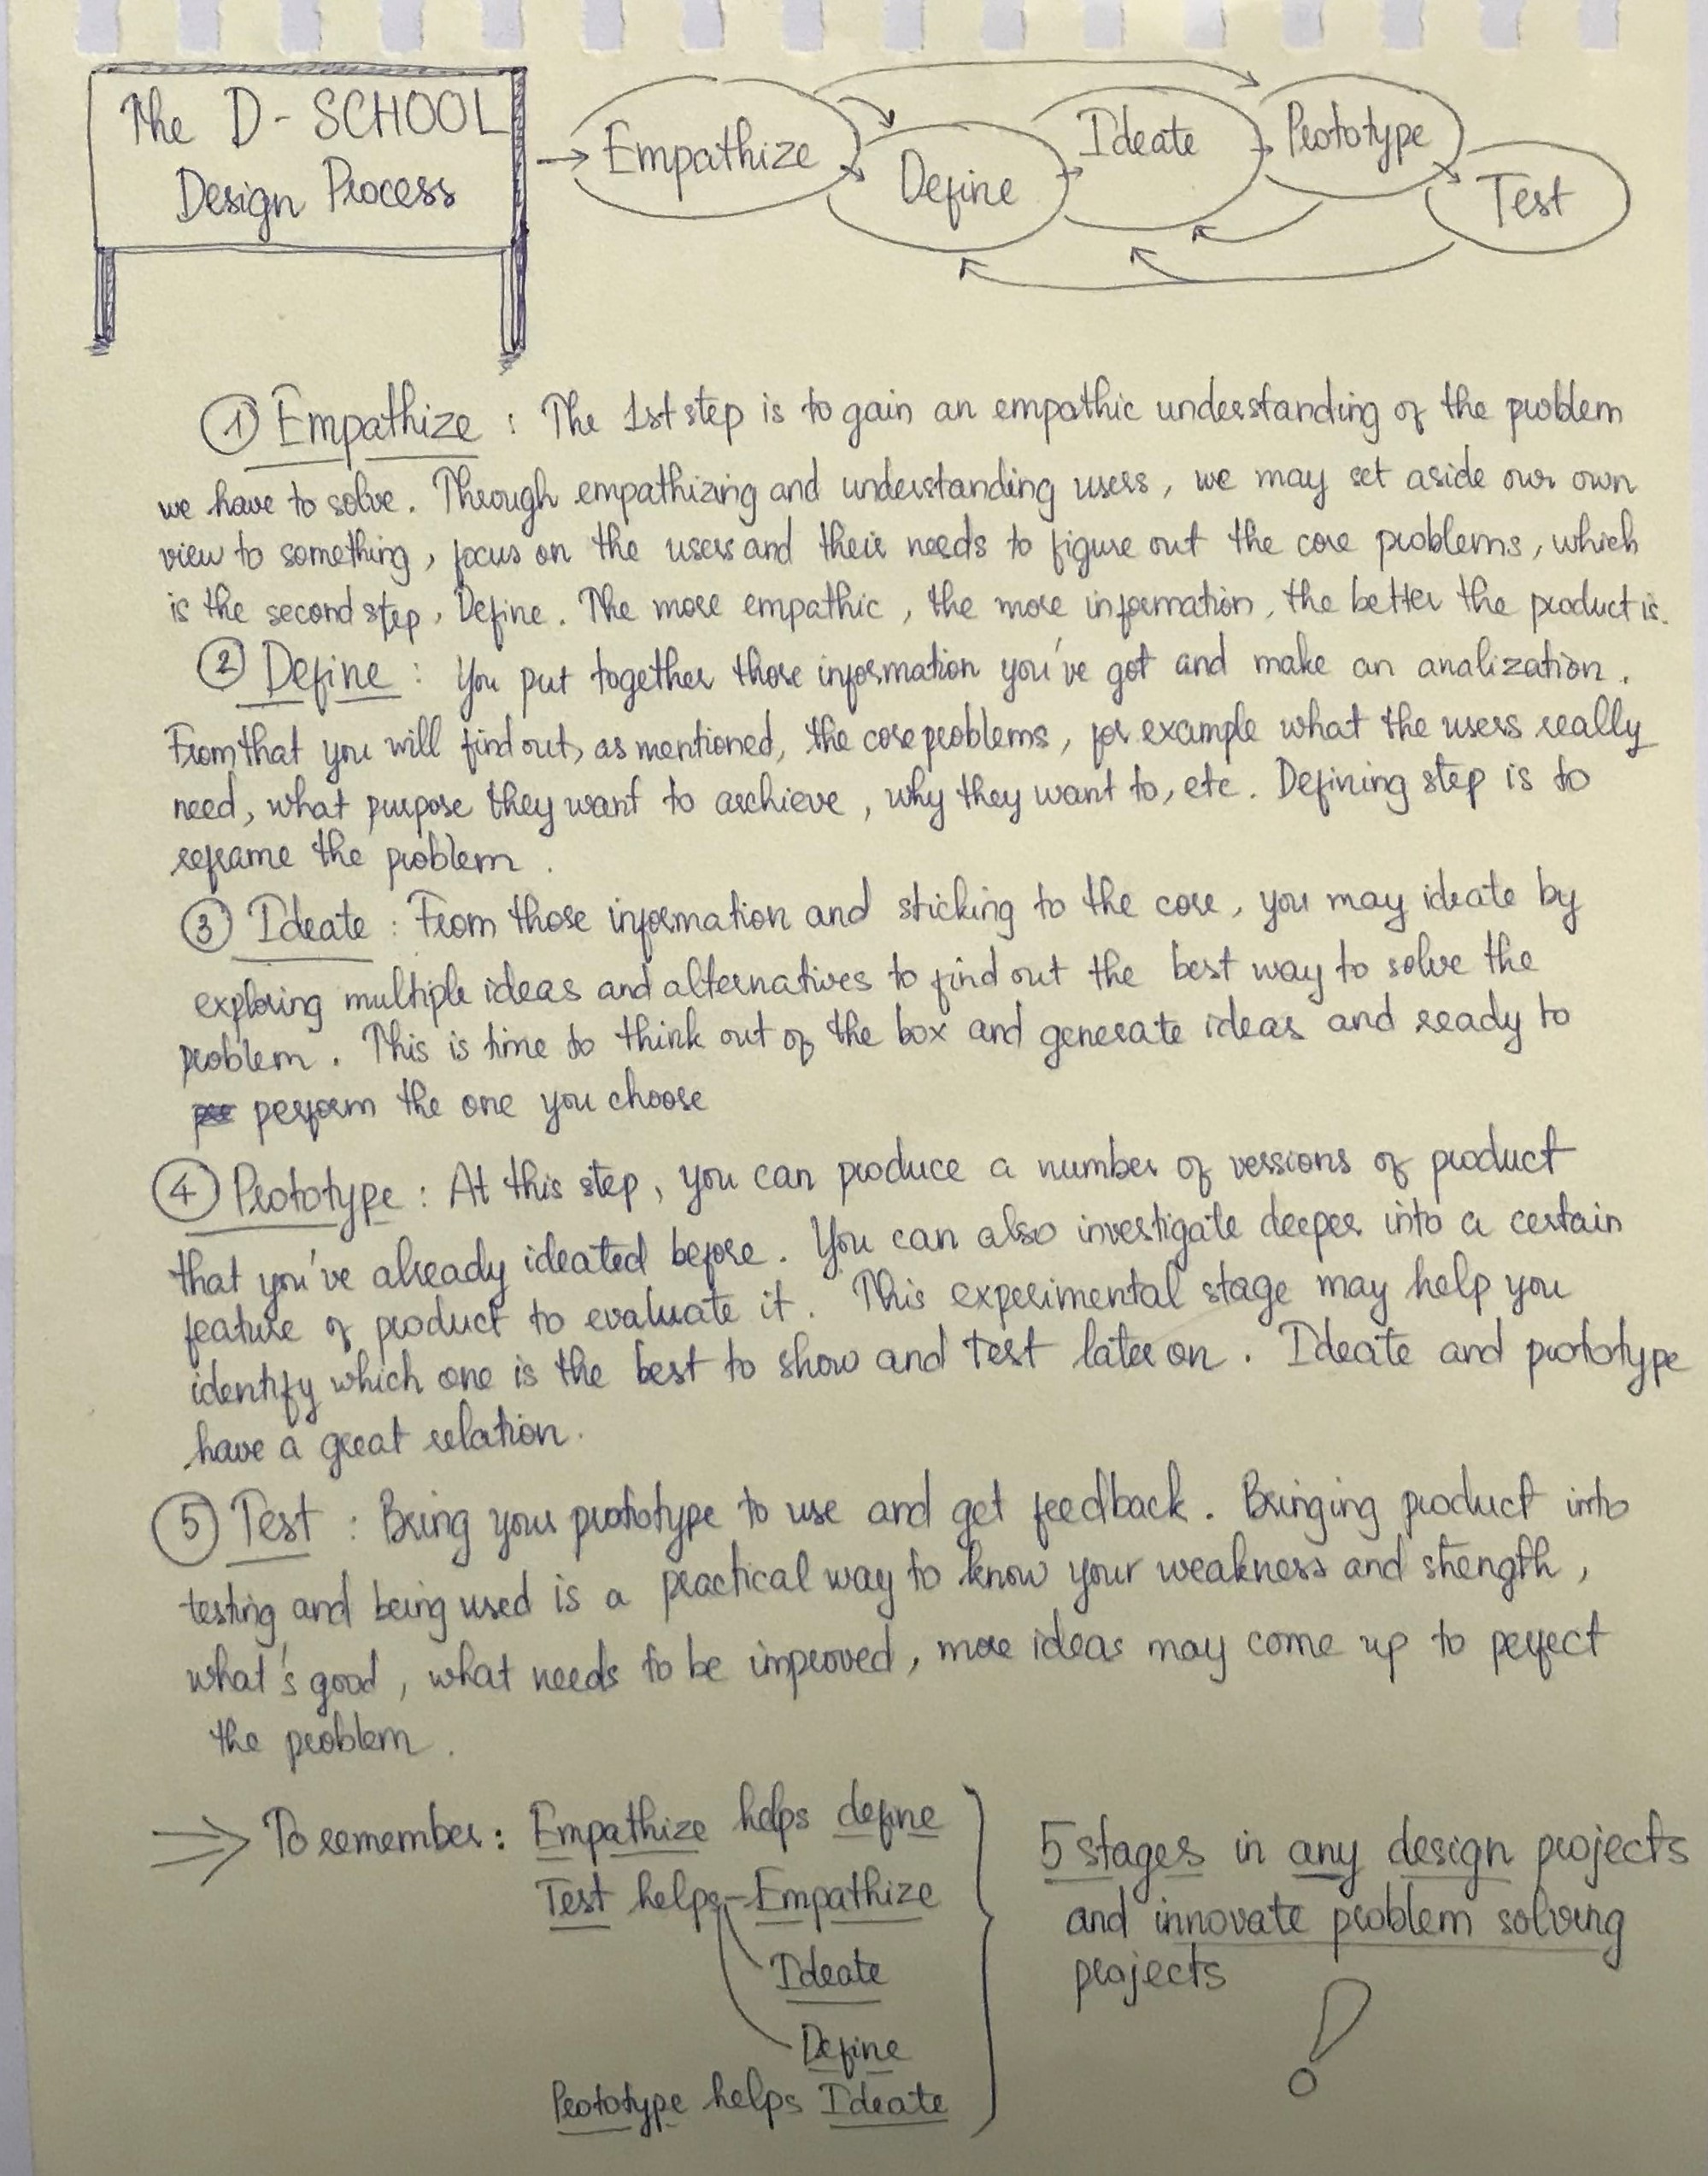 The D-SCHOOL
Design Process
Empathize
Define
Ideate
Prototype
Test
1 Empathize : The 1st step is to gain an empathic understanding of the problem
we have to solve. Through empathizing and understanding users, we may set aside our own
view to something, focus on the users and their needs to figure out the core problems, which
is the second step, Define. The more empathic, the more information, the better the product is.
2 Define : You put together those information you've got and make an analization.
From that you will find out, as mentioned, the core problems, for example what the users really
need, what purpose they want to archieve, why they want to, etc. Defining step is to
reframe the problem.
3 Ideate : From those information and sticking to the core, you may ideate by
exploring multiple ideas and alternatives to find out the best way to solve the
problem. This is time to think out of the box and generate ideas and ready to
perform the one you choose
4 Prototype : At this step, you can produce a number of versions of product
that you've already ideated before. You can also investigate deeper into a certain
feature of product to evaluate it. This experimental stage may help you
identify which one is the best to show and test later on. Ideate and prototype
have a great relation.
5 Test : Bring your prototype to use and get feedback. Bringing product into
testing and being used is a practical way to know your weakness and strength,
what's good, what needs to be improved, more ideas may come up to perfect
the problem.
⇒ To remember: Empathize helps define
Test helps - Empathize
Ideate
Define
Prototype helps Ideate
5 stages in any design projects
and innovate problem solving
projects
!